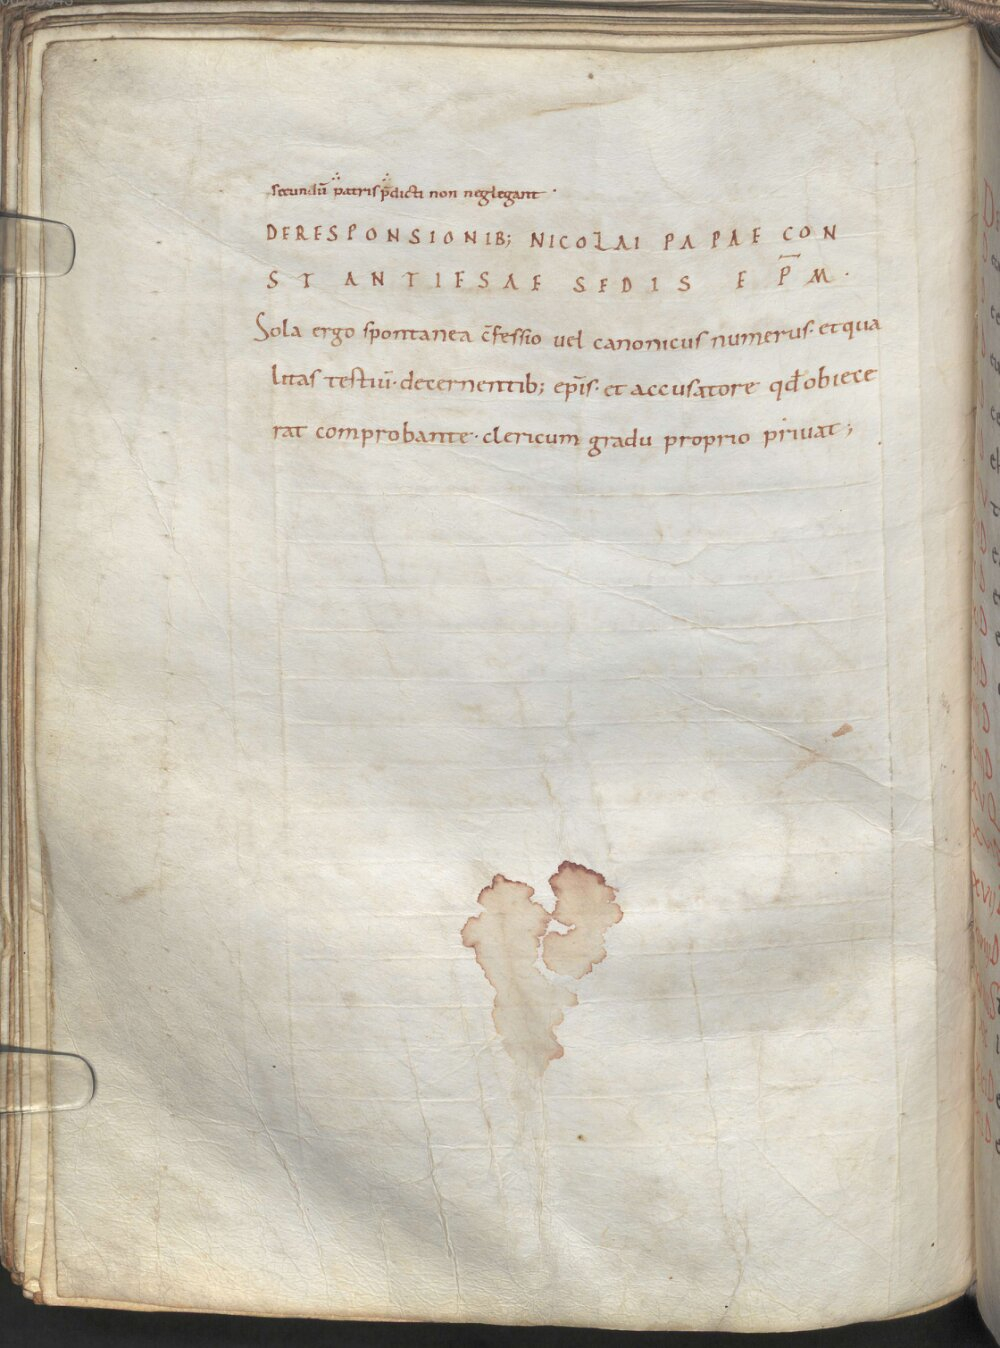 secundū patris p̄dicti non neglegant ·
DERESPONSIONIB; NICOLAI PAPAE CON
STANTIESAE SEDIS EP̄M ·
Sola ergo spontanea c̄fessio uel canonicus numerus · et qua
litas testiū · decernentib; ep̄is · et accusatore qd̄ obiece
rat comprobante · clericum gradu proprio priuat ;